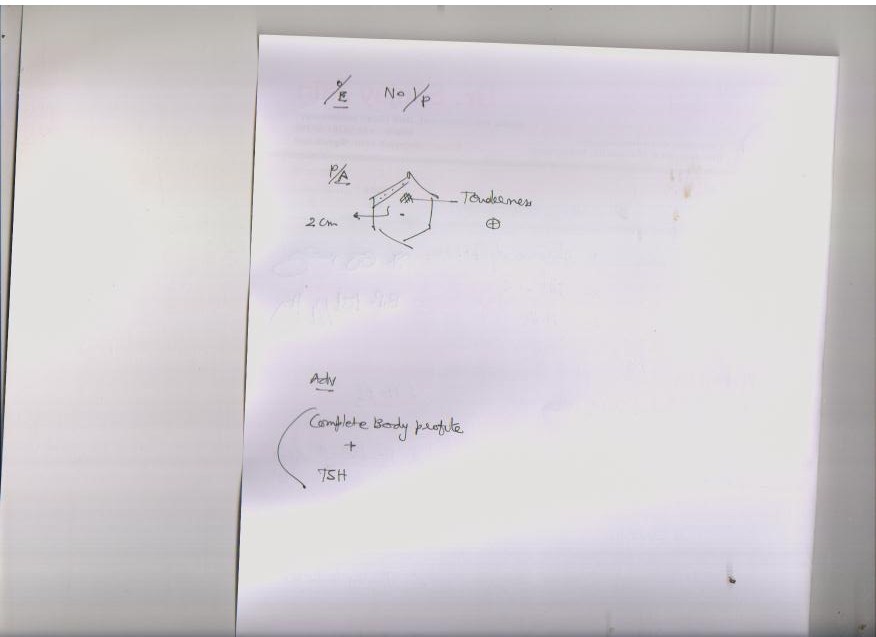 O/E No Y/P
P/A
Tenderness
2 cm
⊕
Adv
Complete Body profile
+
TSH